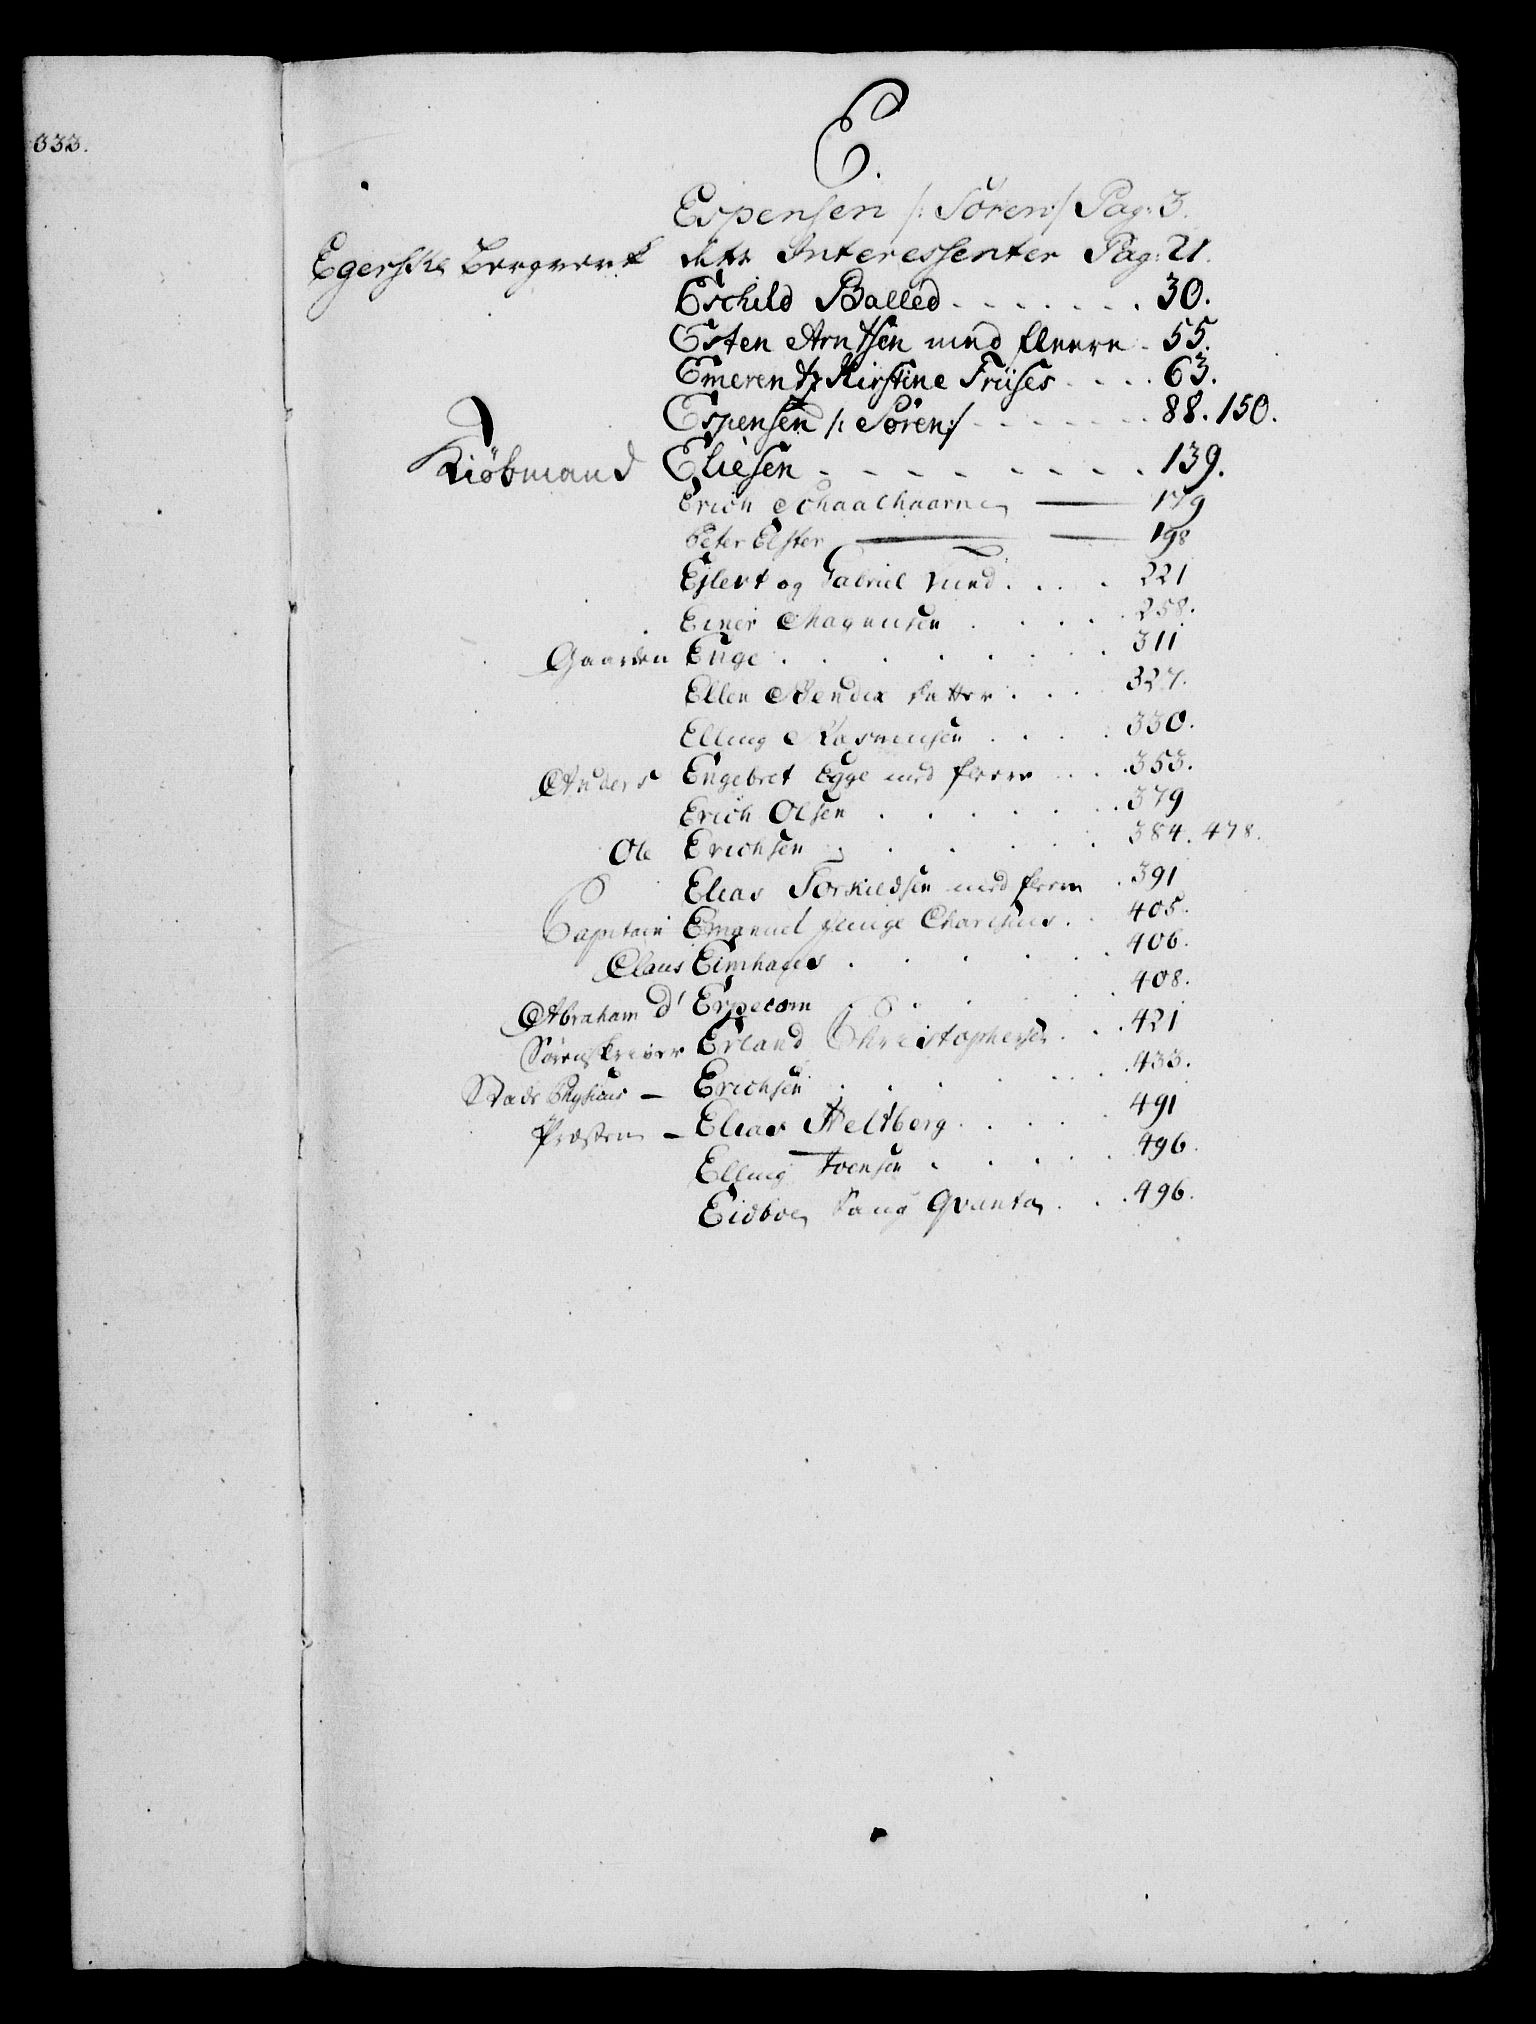 333.
E.
Espensen /: Sören :/ Pag: 3.
Egerske Bergverk dets Interessenter Pag: 21.
Eschild Balled . . . . . . . 30.
Esten Arntsen med fleere . 55.
Emerentz Kirstine Friises . . . . 63.
Espensen /: Sören :/ . . . . . . . 88. 150.
Kiöbmand Eliesen . . . . . . . . . 139.
Erich — 179
Peter Elster — 198
Ejlert og Gabriel Lund . . . . 221
Einer Magnusen . . . . . 258.
Gaarden Enge . . . . . . . . 311
Ellen Bendix datter . . . 327.
Elling Rasmusen . . . . 330.
Anders Engebret Egge med fleere . . . 353.
Erich Olsen . . . . . . 379
Ole Erichsen . . . . . . 384. 478.
Elias Torkildsen med fleere . 391
Capitain Emanuel Junge Charisius . . 405.
Claus Eimhaus . . . . . . 406.
Abraham d' Erpecom . . . . . . 408.
Sörenskriver Erland Christophersen . . . 421
Stads Physicus — Erichsen . . . . . . . 433.
Præsten — Elias Heltberg . . . . 491
Elling Toensen . . . . . 496.
Eidboe Laug Qvanta . . . 496.